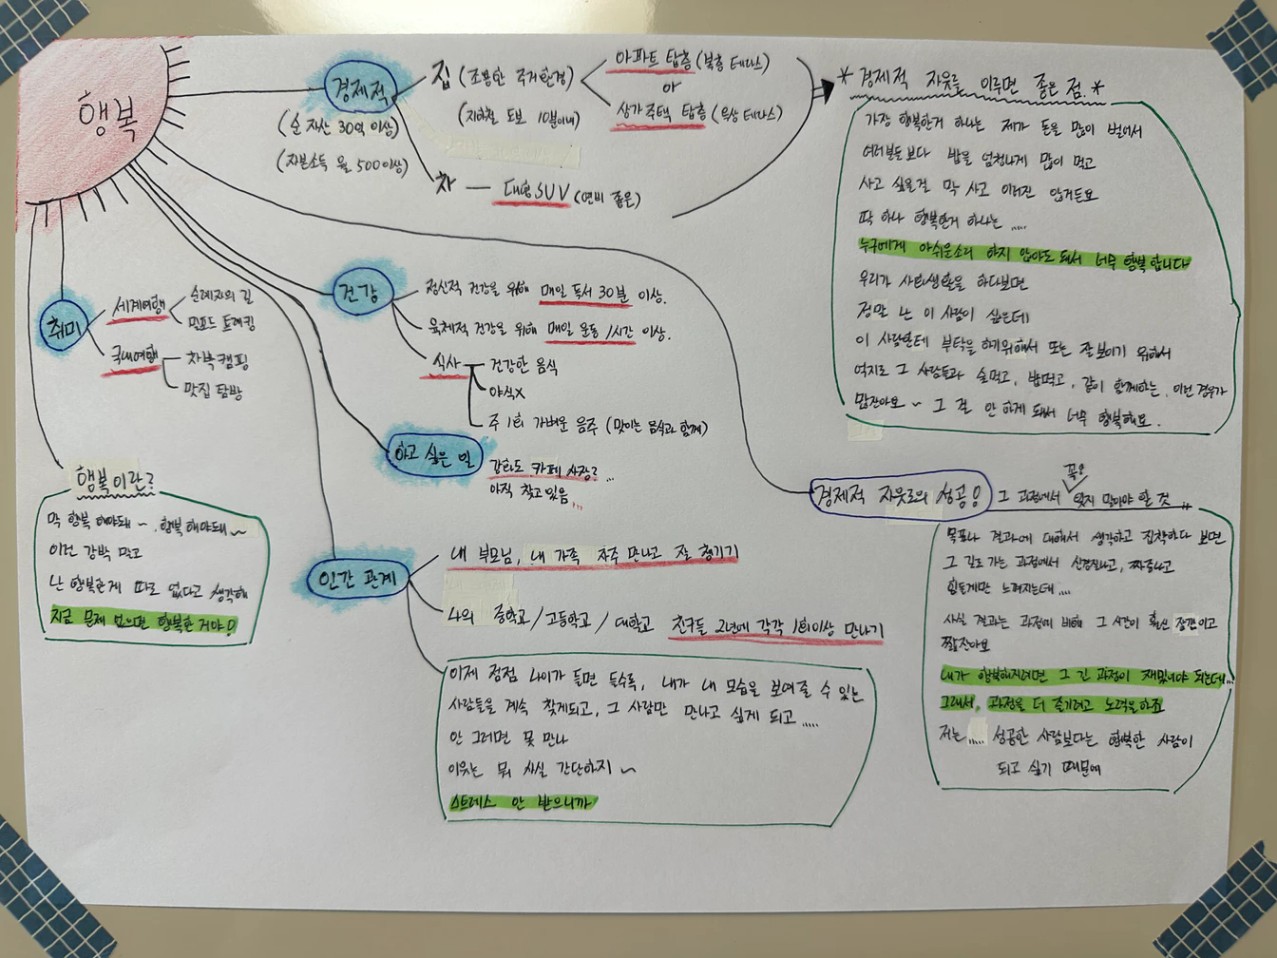 행복
경제적
(순 자산 30억 이상)
(자본소득 월 500이상)
집 (조용한 주거환경)
(지하철 도보 10분이내)
아파트 탑층 (복층 테라스)
or
상가주택 탑층 (옥상 테라스)
차 — 대형 SUV (연비 좋은)
* 경제적 자유를 이루면 좋은 점. *
가장 행복한거 하나는 제가 돈을 많이 벌어서
여러분들보다 밥을 엄청나게 많이 먹고
사고 싶은걸 막 사고 이러진 않거든요
딱 하나 행복한거 하나는 .....
누구에게 아쉬운소리 하지 않아도 돼서 너무 행복합니다
우리가 사회생활을 하다보면
정말 난 이 사람이 싫은데
이 사람한테 부탁을 하기위해서 또는 잘보이기 위해서
억지로 그 사람들과 술먹고, 밥먹고, 같이 함께하는, 이런 경우가
많잖아요~ 그 걸 안 하게 돼서 너무 행복해요.
건강
정신적 건강을 위해 매일 독서 30분 이상.
육체적 건강을 위해 매일 운동 1시간 이상.
식사
건강한 음식
야식X
주 1회 가벼운 음주 (맛있는 음식과 함께)
취미
세계여행
순례자의 길
밀포드 트레킹
국내여행
차박캠핑
맛집 탐방
하고 싶은 일
강화도 카페 사장? ...
아직 찾고있음 ...
행복이란?
막 행복 해야돼~ .행복 해야돼~
이런 강박 말고
난 행복한게 따로 없다고 생각해
지금 문제 없으면 행복한 거야!
인간 관계
내 부모님, 내 가족 자주 만나고 잘 챙기기
나의 중학교 / 고등학교 / 대학교 친구들 2년에 각각 1회이상 만나기
이제 점점 나이가 들면 들수록, 내가 내 모습을 보여줄 수 있는
사람들을 계속 찾게되고, 그 사람만 만나고 싶게 되고 .....
안 그러면 못 만나
이유는 뭐 사실 간단하지 ~
스트레스 안 받으니까
경제적 자유로의 성공!
그 과정에서 꼭! 잊지 말아야 할 것 ..
목표나 결과에 대해서 생각하고 집착하다 보면
그 길로 가는 과정에서 신경질나고, 짜증나고
힘들게만 느껴지는데 ....
사실 결과는 과정에 비해 그 시간이 훨씬 잠깐이고
짧잖아요
내가 행복해지려면 그 긴 과정이 재밌어야 되는데..
그래서, 과정을 더 즐기려고 노력을하죠
저는 .... 성공한 사람보다는 행복한 사람이
되고 싶기 때문에